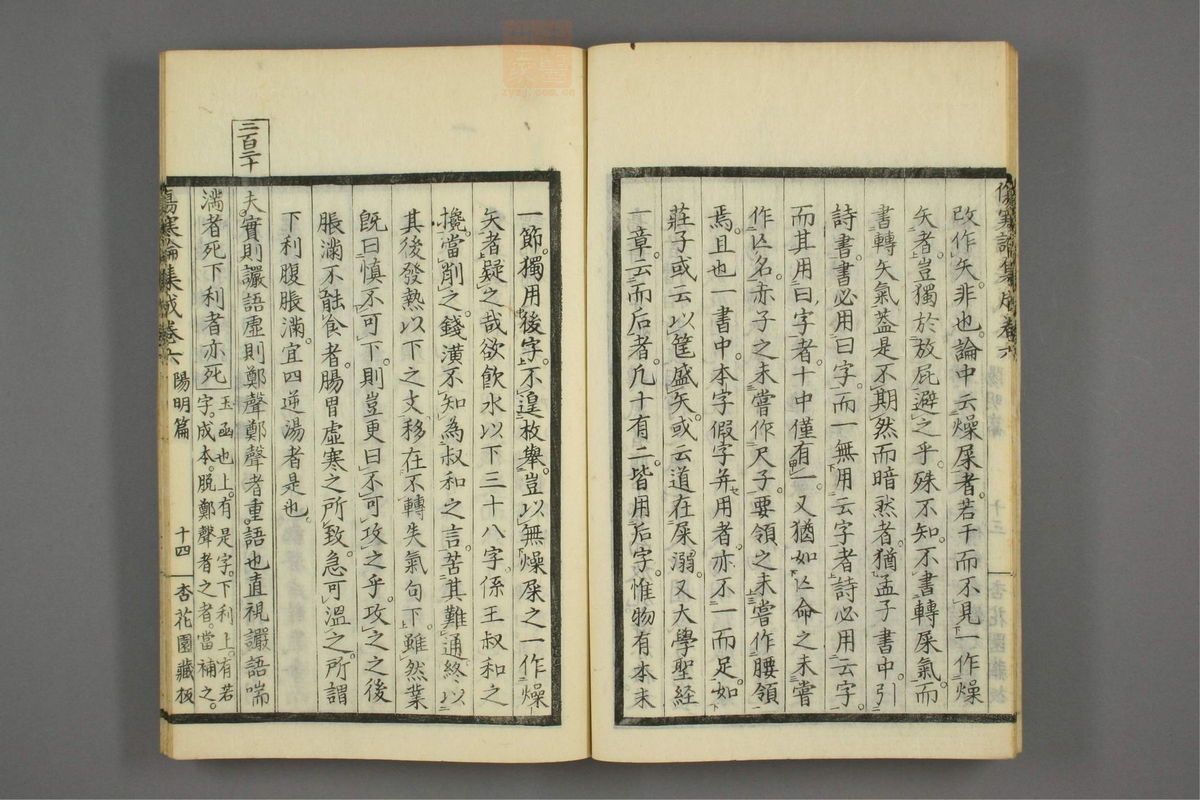 改作矢。非也。論中云燥屎者。若干而不見一作燥
矢者。豈獨於放屁避之乎。殊不知。不書轉屎氣。而
書轉矢氣。蓋是不期然而暗然者。猶孟子書中。引
詩書。書必用曰字。而一無用云字者。詩必用云字。
而其用曰字者。十中僅有一。又猶如亾命之未嘗
作亾名。赤子之未嘗作尺子。要領之未嘗作腰領
焉。且也一書中。本字假字并用者。亦不一而足。如
莊子或云以筐盛矢。或云道在屎溺。又大學聖經
一章。云而后者。凡十有二。皆用后字。惟物有本末
一節。獨用後字。不遑枚舉。豈以無燥屎之一作燥
矢者。疑之哉。欲飲水以下三十八字。係王叔和之
攙。當削之。錢潢不知為叔和之言。苦其難通。終以
其後發熱以下之文。移在不轉失氣句下。雖然業
既曰慎不可下。則豈更曰不可攻之乎。攻之之後
脹滿不能食者。腸胃虛寒之所致。急可溫之。所謂
下利腹脹滿。宜四逆湯者是也。
三百二十
夫實則讝語虛則鄭聲鄭聲者重語也直視讝語喘
滿者死下利者亦死
玉函也上。有是字。下利上。有若
字。成本。脫鄭聲者之者。當補之。
傷寒論集成卷六 陽明篇 十四 杏花園藏板
傷寒論集成卷六